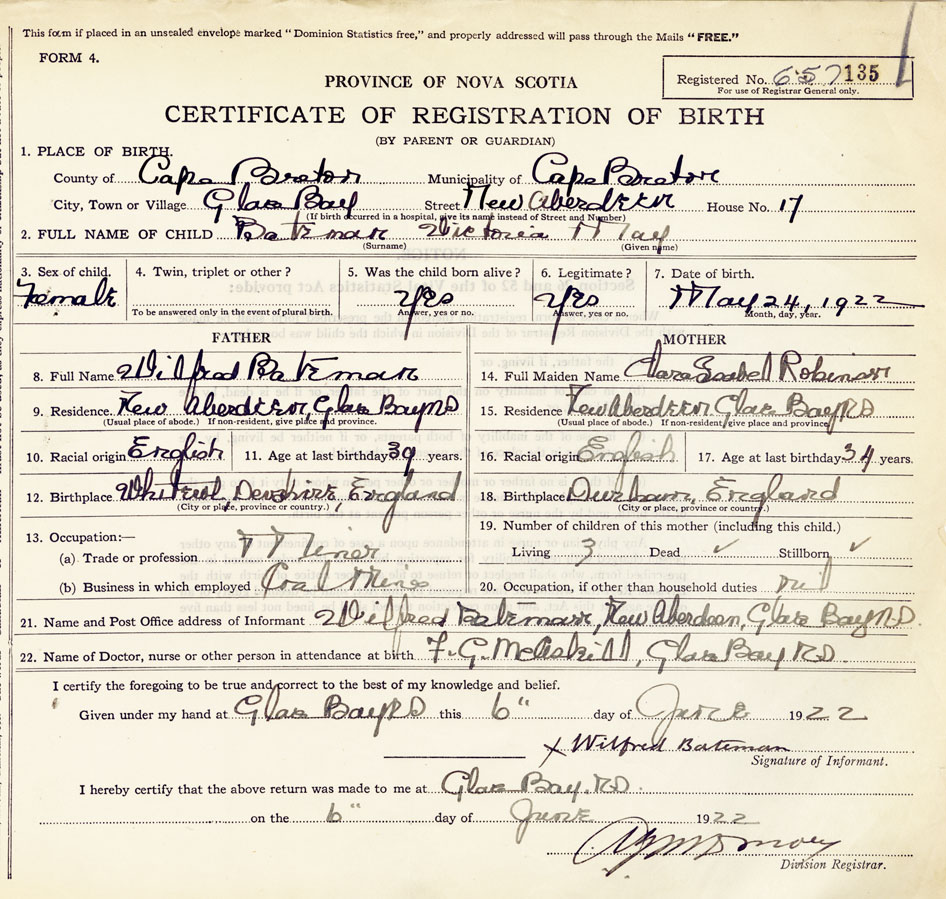 This form if placed in an unsealed envelope marked "Dominion Statistics free," and properly addressed will pass through the Mails "FREE."
FORM 4.
PROVINCE OF NOVA SCOTIA
Registered No. 657135
For use of Registrar General only.
CERTIFICATE OF REGISTRATION OF BIRTH
(BY PARENT OR GUARDIAN)
1. PLACE OF BIRTH.
County of Cape Breton Municipality of Cape Breton
City, Town or Village Glace Bay Street New Aberdeen House No. 17
(If birth occurred in a hospital, give its name instead of Street and Number)
2. FULL NAME OF CHILD Bateman Victoria May
(Surname) (Given name)
3. Sex of child. 4. Twin, triplet or other? 5. Was the child born alive? 6. Legitimate? 7. Date of birth.
Female Yes Yes May 24, 1922
To be answered only in the event of plural birth. Answer, yes or no. Answer, yes or no. Month, day, year.
FATHER MOTHER
8. Full Name Wilfred Bateman 14. Full Maiden Name Clara Isabel Robinson
9. Residence. New Aberdeen, Glace Bay NS 15. Residence New Aberdeen Glace Bay NS
(Usual place of abode.) If non-resident, give place and province. (Usual place of abode.) If non-resident, give place and province
10. Racial origin English 11. Age at last birthday 39 years. 16. Racial origin English 17. Age at last birthday 34 years.
12. Birthplace Devshire, England 18. Birthplace Durham, England
(City or place, province or country.) (City or place, province or country.)
19. Number of children of this mother (including this child.)
13. Occupation:—
(a) Trade or profession Miner Living 3 Dead ✓ Stillborn ✓
(b) Business in which employed Coal Mine 20. Occupation, if other than household duties nil
21. Name and Post Office address of Informant Wilfred Bateman, New Aberdeen, Glace Bay N.S.
22. Name of Doctor, nurse or other person in attendance at birth F. G. McAskill, Glace Bay NS.
I certify the foregoing to be true and correct to the best of my knowledge and belief.
Given under my hand at Glace Bay NS this 6" day of June 1922
x Wilfred Bateman
Signature of Informant.
I hereby certify that the above return was made to me at Glace Bay. NS.
on the 6" day of June 1922
Division Registrar.